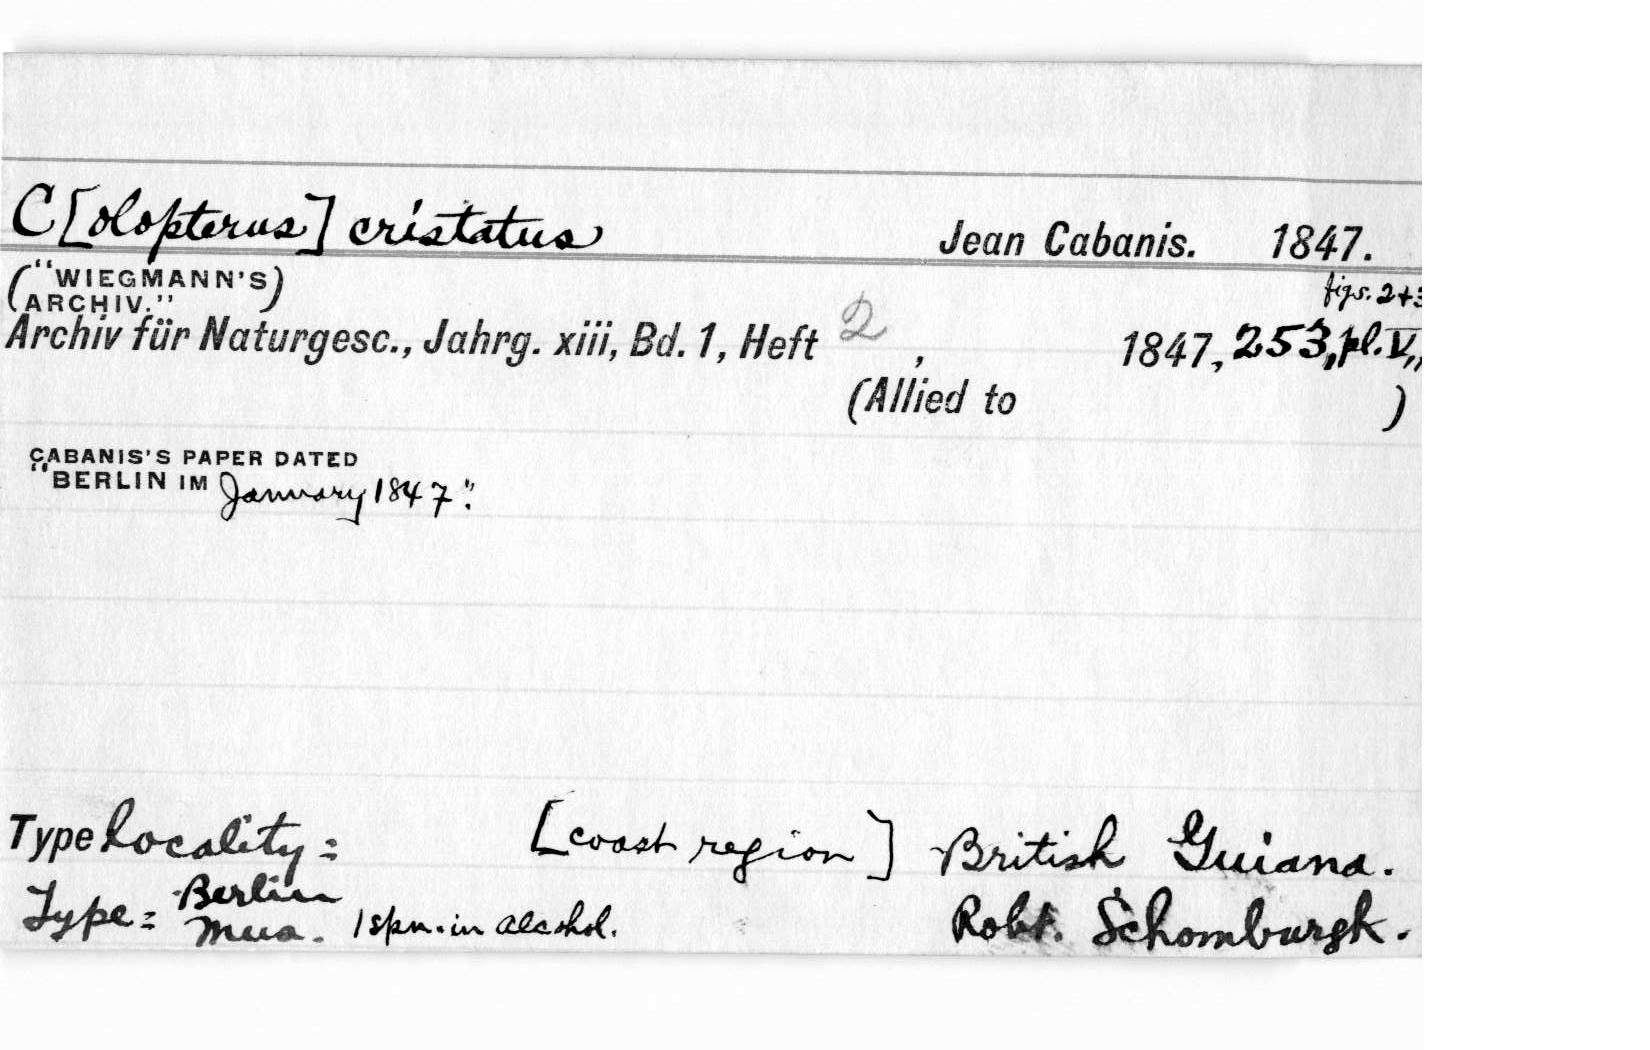 C[olopterus] cristatus Jean Cabanis. 1847.
("WIEGMANN'S
ARCHIV.") figs. 2+3
Archiv für Naturgesc., Jahrg. xiii, Bd. 1, Heft 2, 1847, 253, pl. V,
(Allied to )
CABANIS'S PAPER DATED
"BERLIN IM January 1847".
Type locality = [coast region] British Guiana.
Type = Berlin
Mus. 1 spn. in alcohol. Robt. Schomburgk.